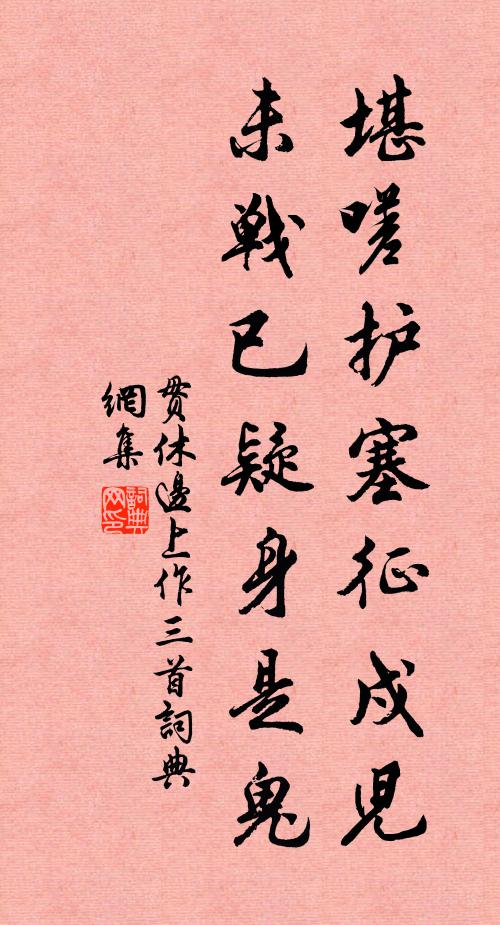 堪嗟护塞征戍児
未戦已疑身是鬼
贯休邊上作三首詞典
網集
詞典
网印